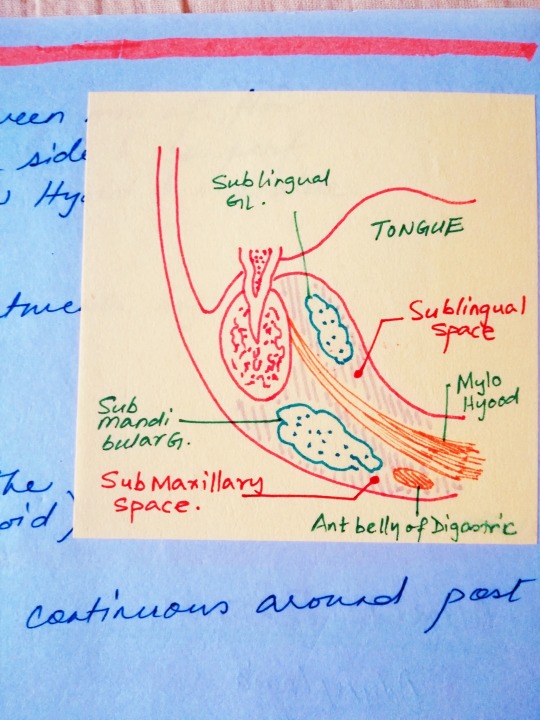 Sublingual
Gl.
TONGUE
Sublingual
space
Mylo
Hyood
Sub
mandi
bular G.
Sub Maxillary
space.
Ant belly of Digastric
side
continuous around post